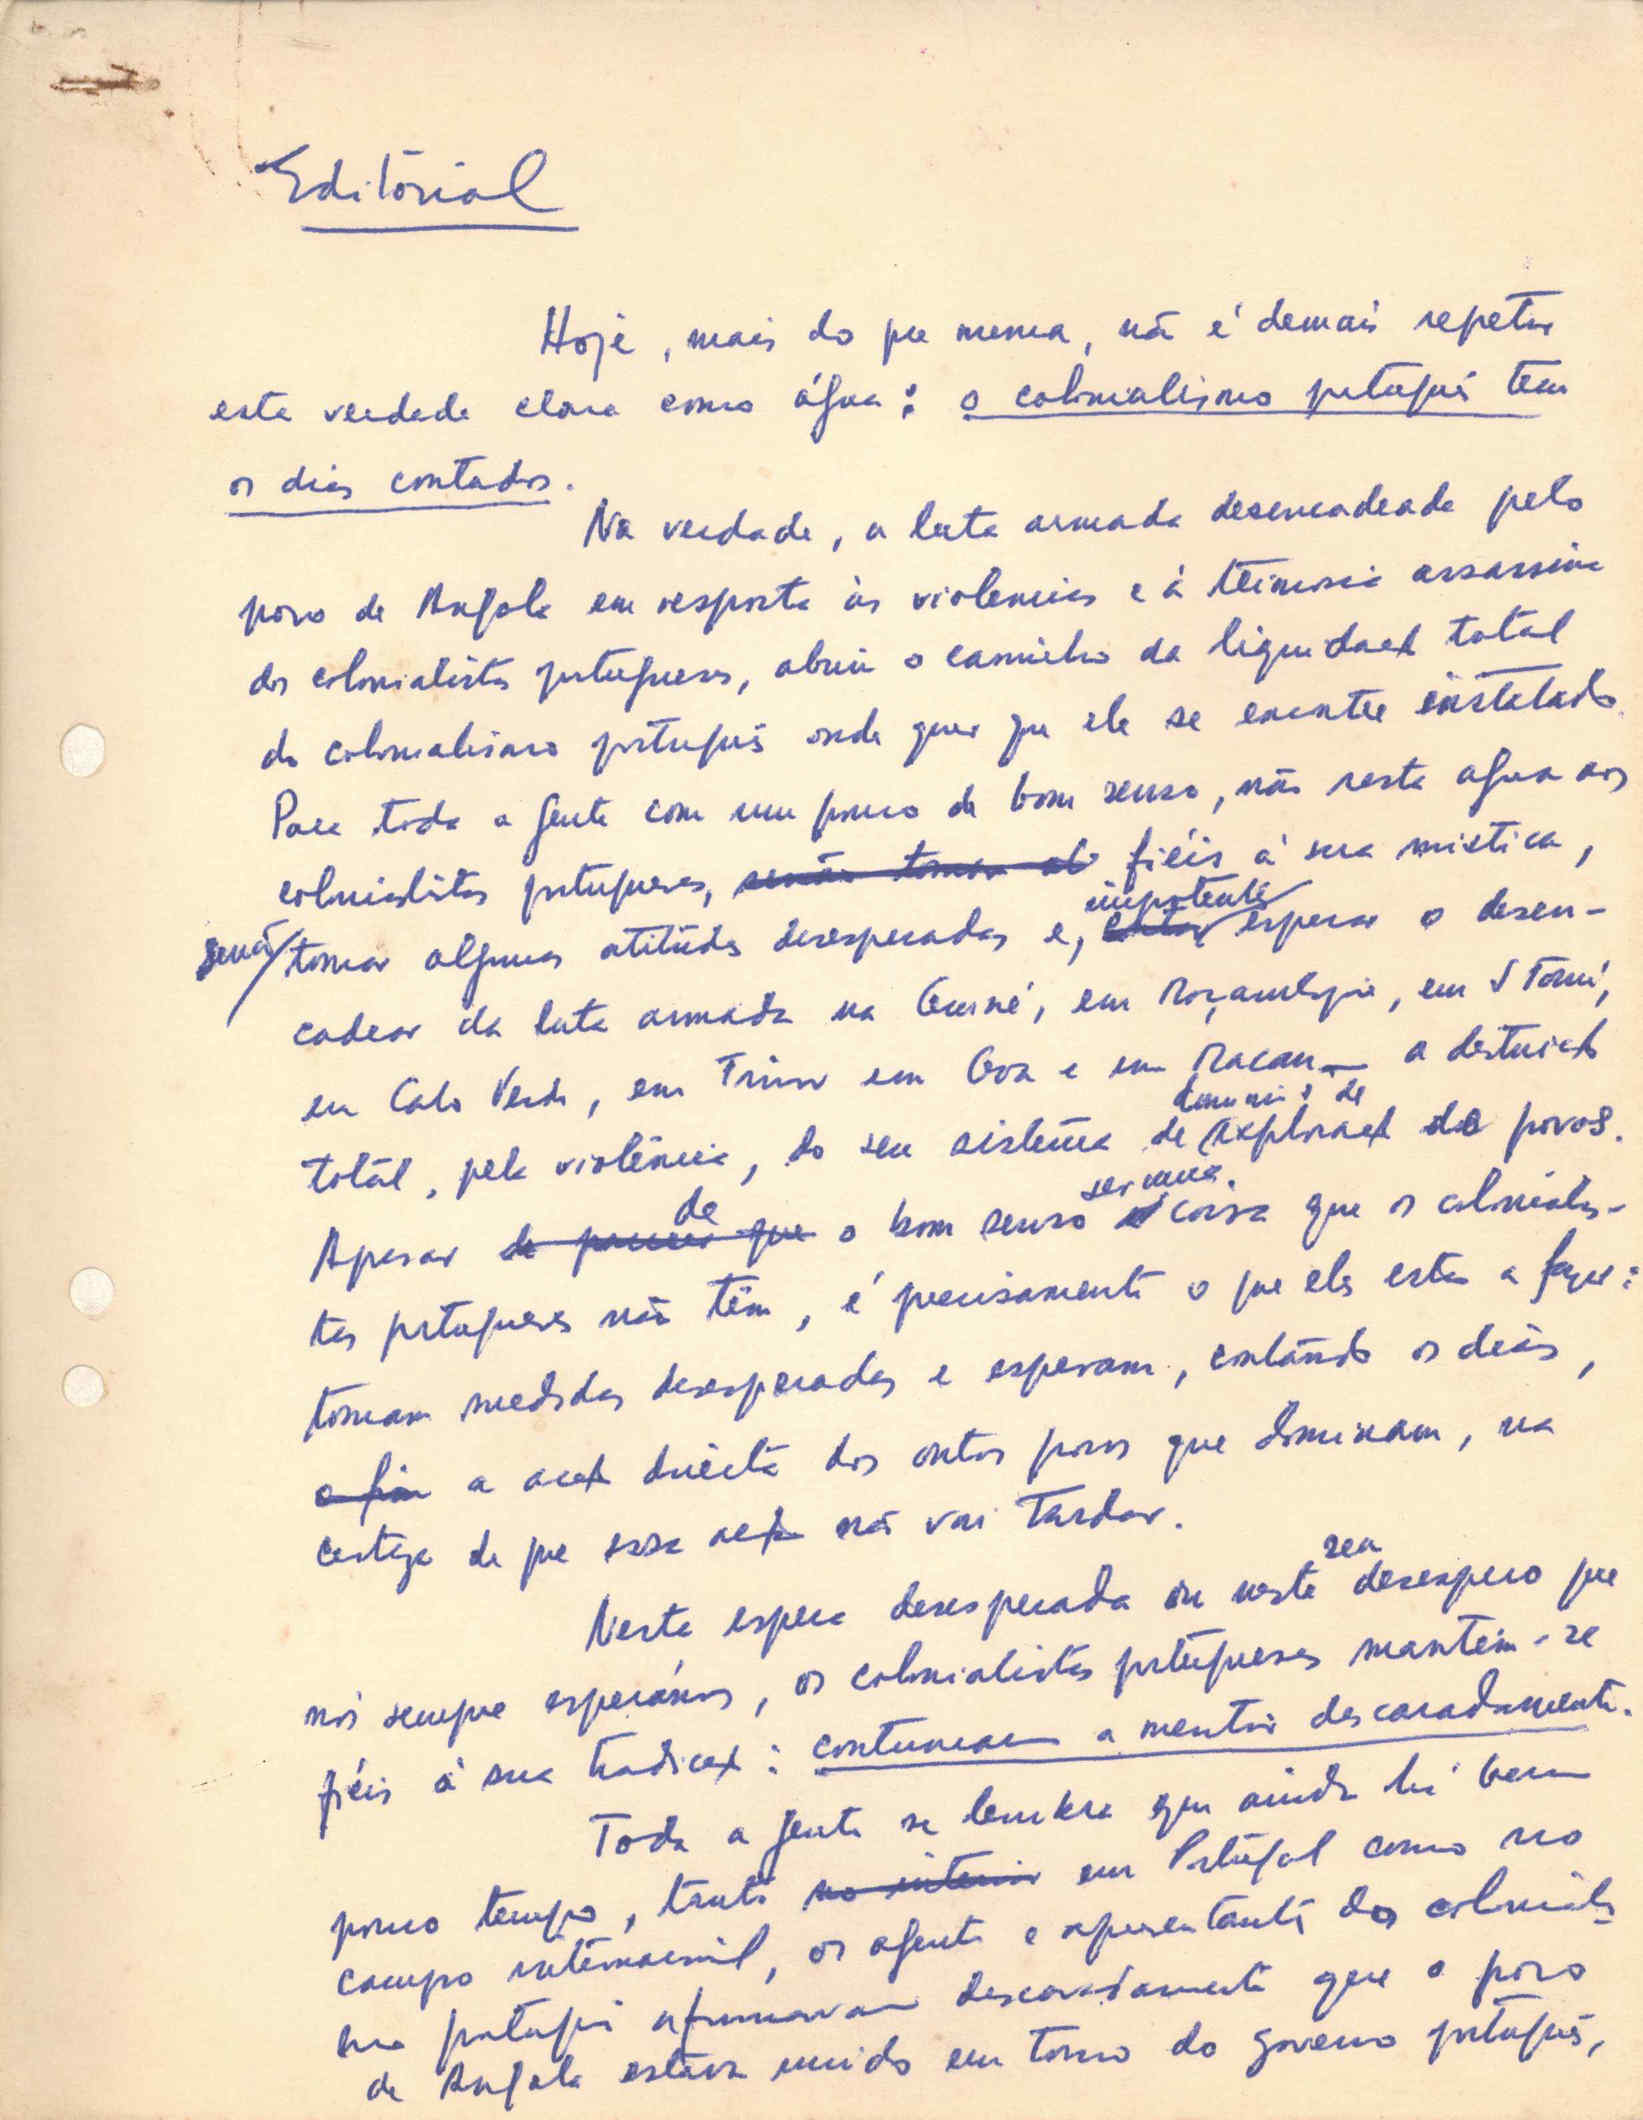 Editorial
Hoje, mais do que nunca, não é demais repetir
esta verdade clara como água: o colonialismo português tem
os dias contados.
Na verdade, a luta armada desencadeada pelo
povo de Angola em resposta às violências e à teimosia assassina
dos colonialistas portugueses, abriu o caminho da liquidação total
do colonialismo português onde quer que ele se encontre instalado.
Para toda a gente com um pouco de bom senso, não resta agora aos
colonialistas portugueses, senão tomar at fiéis à sua mística,
impotentes
senão tomar algumas atitudes desesperadas e, esperar o desen-
cadear da luta armada na Guiné, em Moçambique, em S Tomé,
em Cabo Verde, em Timor em Goa e em Macau — a destruição
domínio e de
total, pela violência, do seu sistema de exploração de povos.
de ser uma
Apesar de parecer que o bom senso coisa que os colonialis-
tas portugueses não têm, é precisamente o que eles estão a fazer:
tomam medidas desesperadas e esperam, contando os dias,
o fim a acção directa dos outros povos que dominam, na
certeza de que essa acção não vai tardar.
seu
Nesta espera desesperada ou neste desespero que
nós sempre esperámos, os colonialistas portugueses mantêm-se
fiéis à sua tradição: continuam a mentir descaradamente.
Toda a gente se lembra que ainda há bem
pouco tempo, tanto no interior em Portugal como no
campo internacional, os agentes e representantes do colonialis-
mo português afirmavam descaradamente que o povo
de Angola estava unido em torno do governo português,